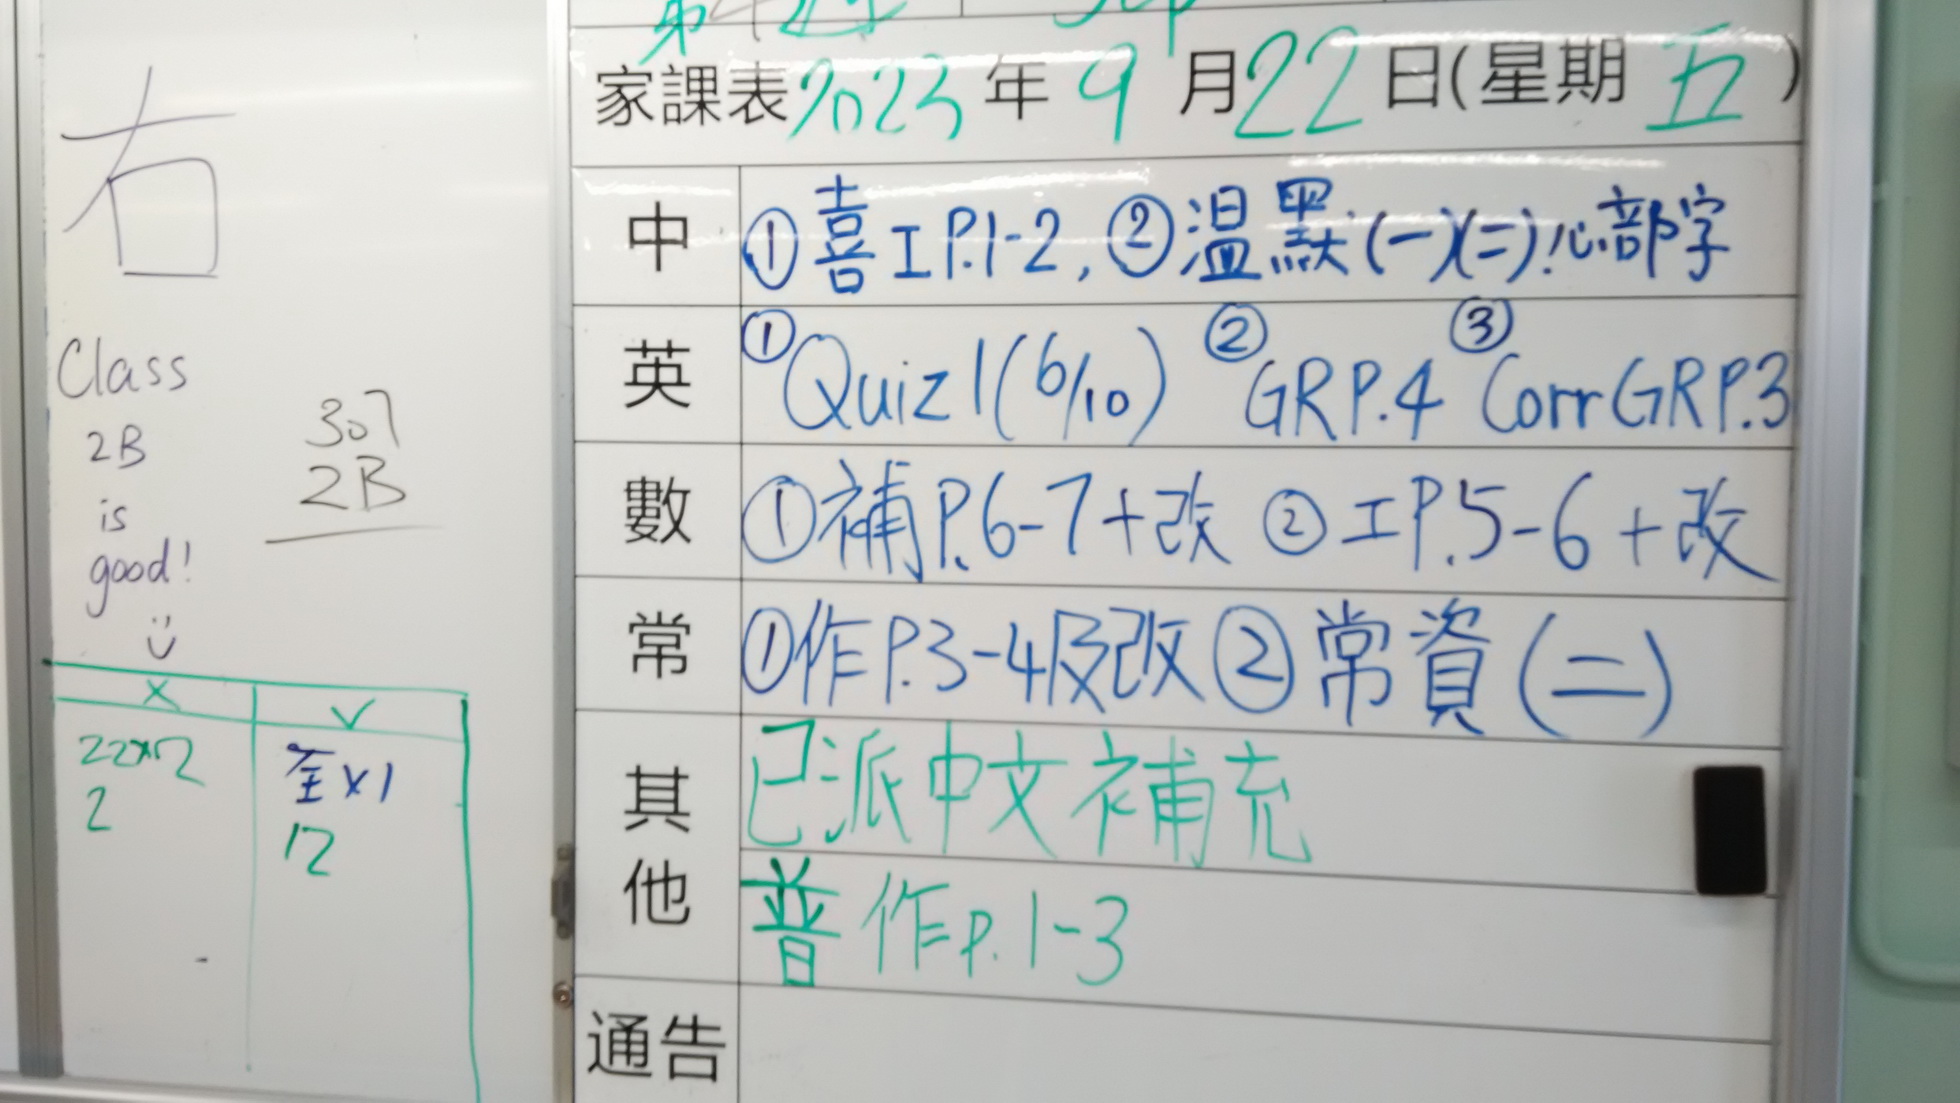 右
Class
2B
is
good!
307
2B
X V
22x12 全x1
2 12
家課表2023年9月22日(星期五)
中 ①喜工P.1-2, ②温默(一)(二)心部字
英 ①Quiz 1(6/10) ②GRP.4 ③Corr GRP.3
數 ①補P.6-7+改 ②工P.5-6+改
常 ①作P.3-4及改 ②常資(二)
其他 已派中文補充
普作P.1-3
通告